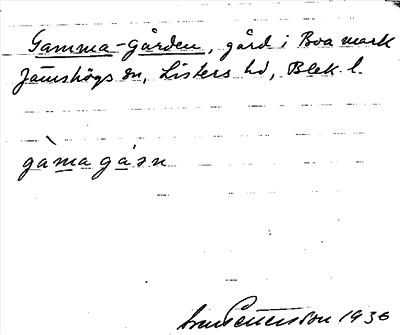 Gamma-gården, gård i Boa mark
Jämshögs sn, Listers hd, Blek. l.
gàmagá2n
Pettersson 1936